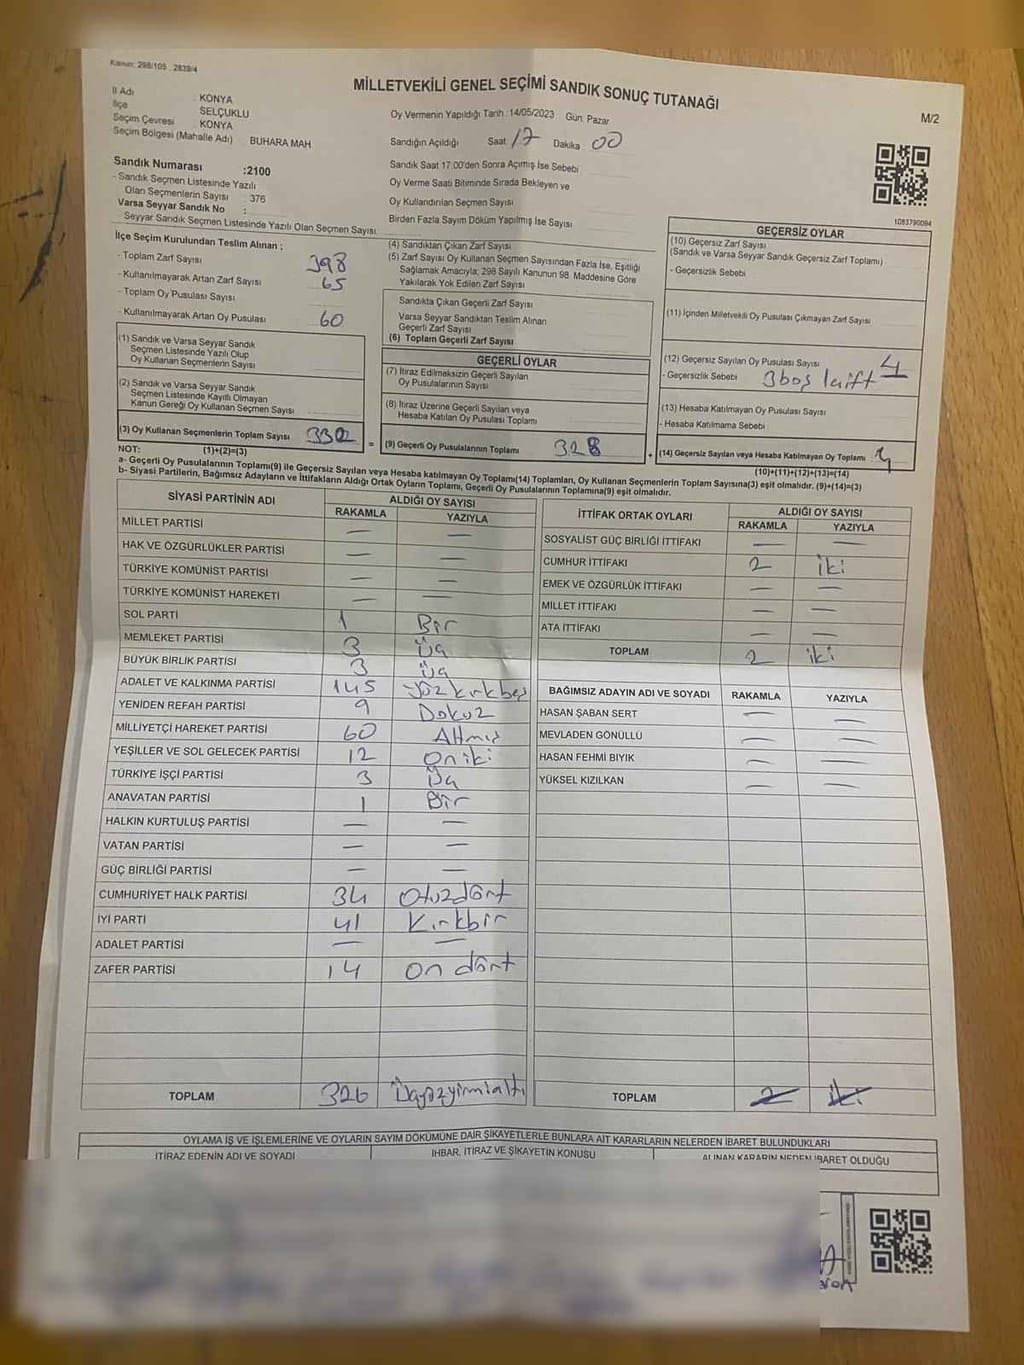 Kanun: 298/105 , 2839/4
MİLLETVEKİLİ GENEL SEÇİMİ SANDIK SONUÇ TUTANAĞI
M/2
İl Adı KONYA
İlçe SELÇUKLU
Seçim Çevresi KONYA
Seçim Bölgesi (Mahalle Adı) BUHARA MAH
Oy Vermenin Yapıldığı Tarih 14/05/2023 Gün: Pazar
Sandığın Açıldığı Saat 17 Dakika 00
Sandık Saat 17:00'den Sonra Açımış İse Sebebi
Oy Verme Saati Bitiminde Sırada Bekleyen ve
Oy Kullandırılan Seçmen Sayısı
Birden Fazla Sayım Döküm Yapılmış İse Sayısı
Sandık Numarası :2100
- Sandık Seçmen Listesinde Yazılı
Olan Seçmenlerin Sayısı : 376
Varsa Seyyar Sandık No :
- Seyyar Sandık Seçmen Listesinde Yazılı Olan Seçmen Sayısı
1083790094
İlçe Seçim Kurulundan Teslim Alınan ;
- Toplam Zarf Sayısı 398
- Kullanılmayarak Artan Zarf Sayısı 65
- Toplam Oy Pusulası Sayısı
- Kullanılmayarak Artan Oy Pusulası 60
(1) Sandık ve Varsa Seyyar Sandık
Seçmen Listesinde Yazılı Olup
Oy Kullanan Seçmenlerin Sayısı
(2) Sandık ve Varsa Seyyar Sandık
Seçmen Listesinde Kayıtlı Olmayan
Kanun Gereği Oy Kullanan Seçmen Sayısı
(3) Oy Kullanan Seçmenlerin Toplam Sayısı 332
(4) Sandıktan Çıkan Zarf Sayısı
(5) Zarf Sayısı Oy Kullanan Seçmen Sayısından Fazla İse, Eşitliği
Sağlamak Amacıyla; 298 Sayılı Kanunun 98. Maddesine Göre
Yakılarak Yok Edilen Zarf Sayısı
Sandıkta Çıkan Geçerli Zarf Sayısı
Varsa Seyyar Sandıktan Teslim Alınan
Geçerli Zarf Sayısı
(6) Toplam Geçerli Zarf Sayısı
GEÇERLİ OYLAR
(7) İtiraz Edilmeksizin Geçerli Sayılan
Oy Pusulalarının Sayısı
(8) İtiraz Üzerine Geçerli Sayılan veya
Hesaba Katılan Oy Pusulası Toplamı
= (9) Geçerli Oy Pusulalarının Toplamı 328
GEÇERSİZ OYLAR
(10) Geçersiz Zarf Sayısı
(Sandık ve Varsa Seyyar Sandık Geçersiz Zarf Toplamı)
- Geçersizlik Sebebi
(11) İçinden Milletvekili Oy Pusulası Çıkmayan Zarf Sayısı
(12) Geçersiz Sayılan Oy Pusulası Sayısı 4
- Geçersizlik Sebebi 3 boş 1 çift
(13) Hesaba Katılmayan Oy Pusulası Sayısı
- Hesaba Katılmama Sebebi
+ (14) Geçersiz Sayılan veya Hesaba Katılmayan Oy Toplamı 4
NOT: (1)+(2)=(3)
(10)+(11)+(12)+(13)=(14)
a- Geçerli Oy Pusulalarının Toplamı(9) ile Geçersiz Sayılan veya Hesaba katılmayan Oy Toplamı(14) Toplamları, Oy Kullanan Seçmenlerin Toplam Sayısına(3) eşit olmalıdır. (9)+(14)=(3)
b- Siyasi Partilerin, Bağımsız Adayların ve İttifakların Aldığı Ortak Oyların Toplamı, Geçerli Oy Pusulalarının Toplamına(9) eşit olmalıdır.
SİYASİ PARTİNİN ADI ALDIĞI OY SAYISI
RAKAMLA YAZIYLA
MİLLET PARTİSİ — —
HAK VE ÖZGÜRLÜKLER PARTİSİ — —
TÜRKİYE KOMÜNİST PARTİSİ — —
TÜRKİYE KOMÜNİST HAREKETİ — —
SOL PARTİ 1 Bir
MEMLEKET PARTİSİ 3 Üç
BÜYÜK BİRLİK PARTİSİ 3 Üç
ADALET VE KALKINMA PARTİSİ 145 Yüzkırkbeş
YENİDEN REFAH PARTİSİ 9 Dokuz
MİLLİYETÇİ HAREKET PARTİSİ 60 Altmış
YEŞİLLER VE SOL GELECEK PARTİSİ 12 oniki
TÜRKİYE İŞÇİ PARTİSİ 3 Üç
ANAVATAN PARTİSİ 1 Bir
HALKIN KURTULUŞ PARTİSİ — —
VATAN PARTİSİ — —
GÜÇ BİRLİĞİ PARTİSİ — —
CUMHURİYET HALK PARTİSİ 34 Otuzdört
İYİ PARTİ 41 Kırkbir
ADALET PARTİSİ — —
ZAFER PARTİSİ 14 on dört
TOPLAM 326 Üçyüzyirmialtı
İTTİFAK ORTAK OYLARI ALDIĞI OY SAYISI
RAKAMLA YAZIYLA
SOSYALİST GÜÇ BİRLİĞİ İTTİFAKI — —
CUMHUR İTTİFAKI 2 iki
EMEK VE ÖZGÜRLÜK İTTİFAKI — —
MİLLET İTTİFAKI — —
ATA İTTİFAKI — —
TOPLAM 2 iki
BAĞIMSIZ ADAYIN ADI VE SOYADI RAKAMLA YAZIYLA
HASAN ŞABAN SERT — —
MEVLADEN GÖNÜLLÜ — —
HASAN FEHMİ BIYIK — —
YÜKSEL KIZILKAN — —
TOPLAM 2 iki
OYLAMA İŞ VE İŞLEMLERİNE VE OYLARIN SAYIM DÖKÜMÜNE DAİR ŞİKAYETLERLE BUNLARA AİT KARARLARIN NELERDEN İBARET BULUNDUKLARI
İTİRAZ EDENİN ADI VE SOYADI İHBAR, İTİRAZ VE ŞİKAYETİN KONUSU ALINAN KARARIN NEDEN İBARET OLDUĞU